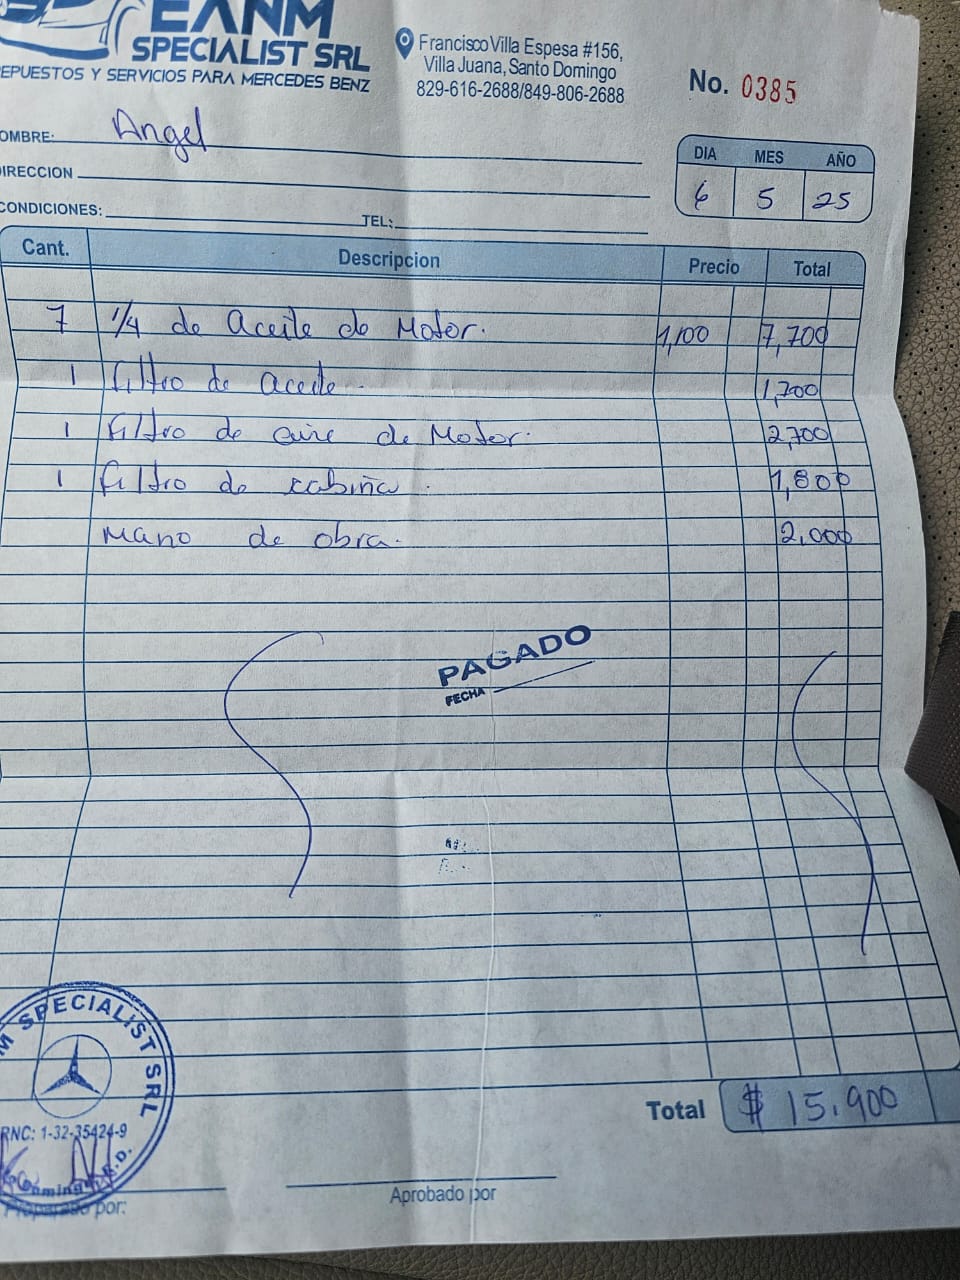 EANM
SPECIALIST SRL
REPUESTOS Y SERVICIOS PARA MERCEDES BENZ
Francisco Villa Espesa #156,
Villa Juana, Santo Domingo
829-616-2688/849-806-2688
No. 0385
NOMBRE: Angel
DIRECCION
CONDICIONES: TEL:
DIA MES AÑO
6 5 25
Cant. Descripcion Precio Total
7 1/4 de Aceite de Motor. 1,100 7,700
1 Filtro de aceite 1,700
1 Filtro de aire de Motor. 2,700
1 Filtro de cabina 1,800
Mano de obra. 2,000
PAGADO
FECHA
Total $ 15.900
M SPECIALIST SRL
RNC: 1-32-35424-9
R.D.
Preparado por:
Aprobado por